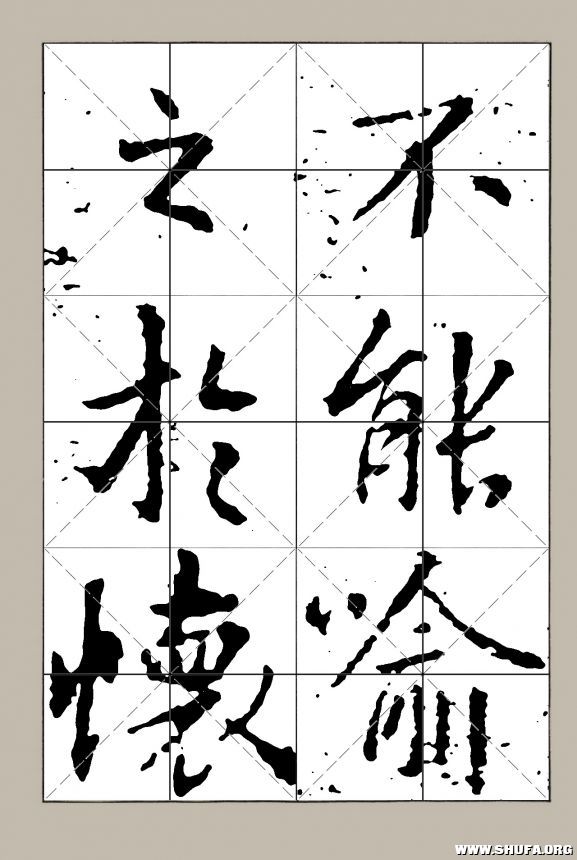 不能喻
之於懷
WWW.SHUFA.ORG